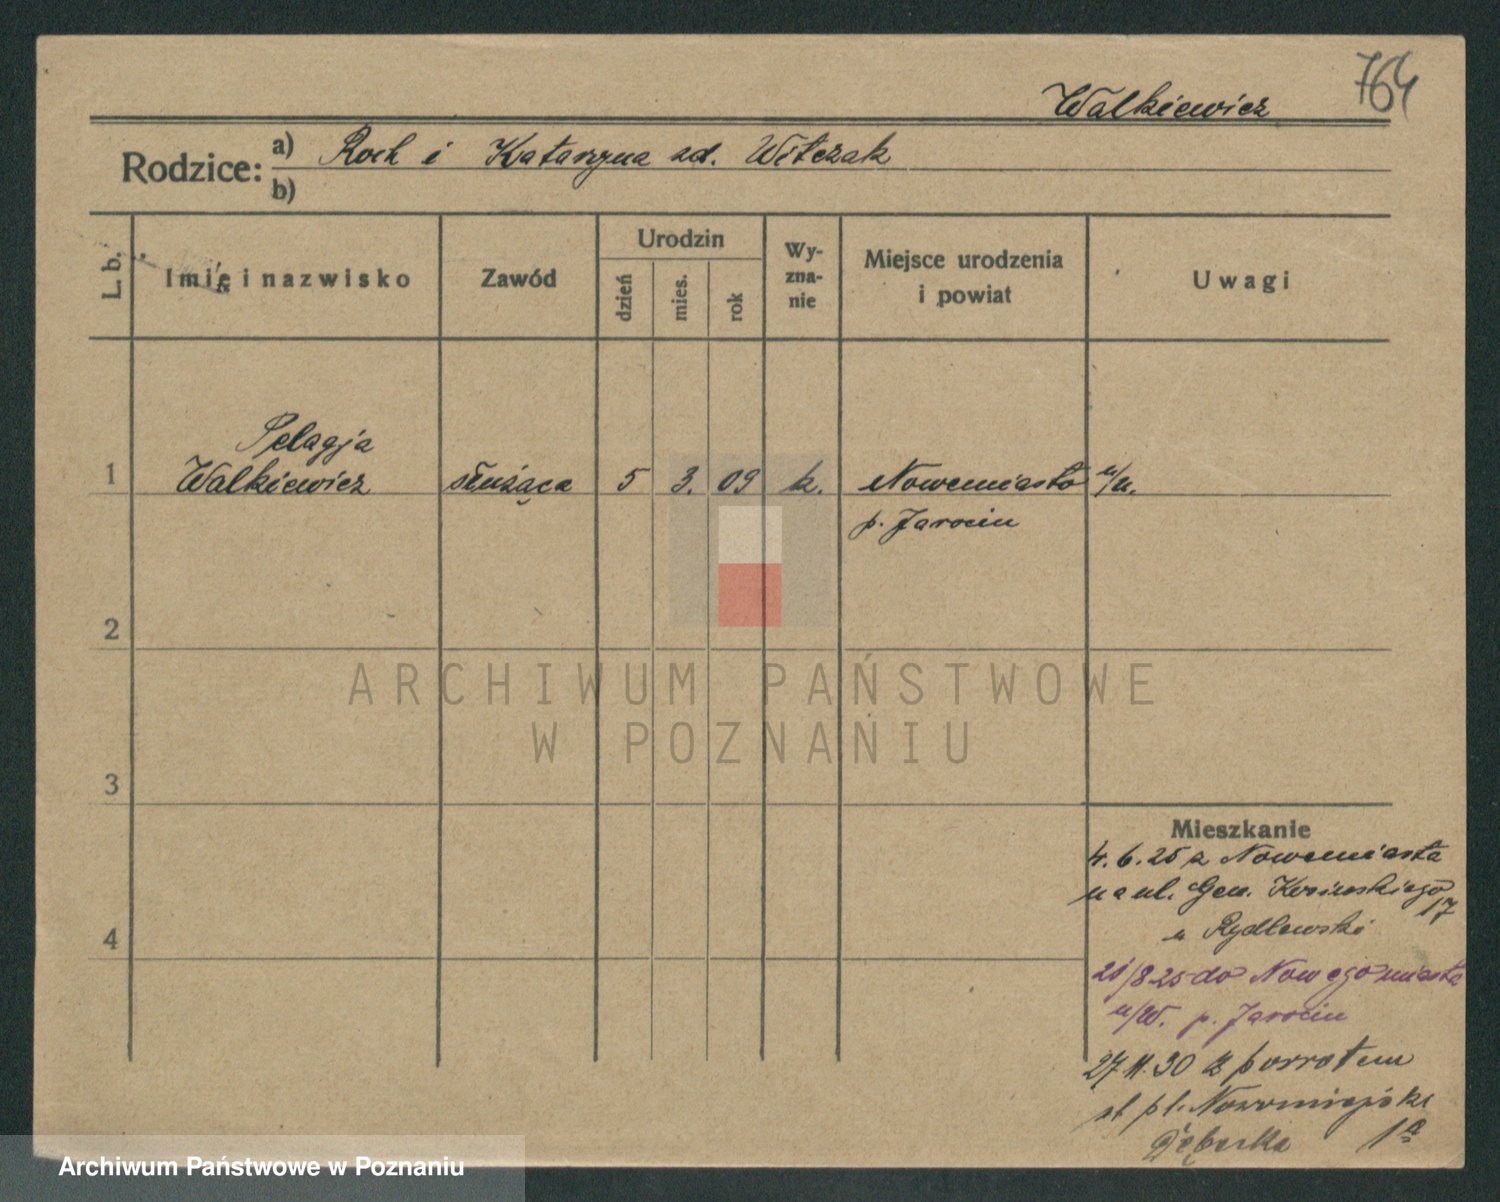 764
Walkiewicz
Rodzice: a) Roch i Katarzyna zd. Witczak
b)
L. b.
Imię i nazwisko
Zawód
Urodzin
dzień
mies.
rok
Wy-
zna-
nie
Miejsce urodzenia
i powiat
Uwagi
Pelagja
1 Walkiewicz służąca 5 3. 09 k. Nowemiasto n/W.
p. Jarocin
2
ARCHIWUM PAŃSTWOWE
W POZNANIU
3
4
Mieszkanie
4.6.25 z Nowemiasta
na ul. Gen. Kosińskiego
17
u Rydlewski
21/8 25 do Nowegomiasta
n/W. p. Jarocin
27.11.30 z powrotem
pl. Nowomiejski
1a
Archiwum Państwowe w Poznaniu